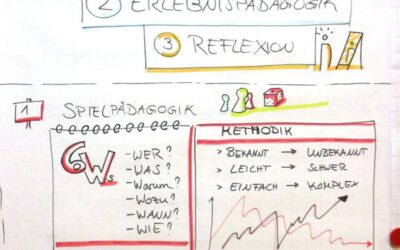 2 ERLEBNISPÄDAGOGIK
3 REFLEXION
1 SPIELPÄDAGOGIK
6Ws
- WER?
- WAS?
- Warum?
- Wozu?
- WANN?
- WIE?
METHODIK
> BEKANNT → UNBEKANNT
> LEICHT → SCHWER
> EINFACH → KOMPLEX